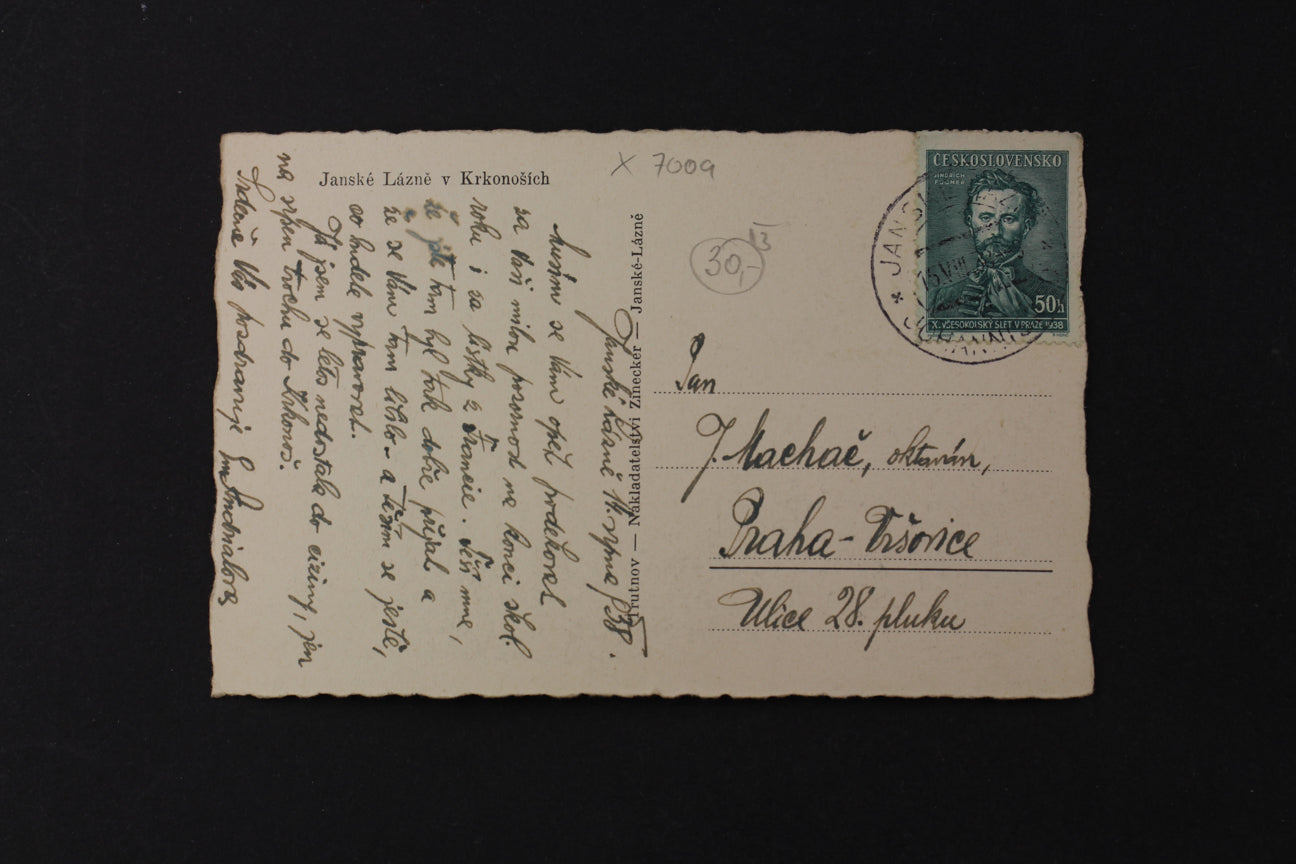 Janské Lázně v Krkonoších
X 7009
30,-
ČESKOSLOVENSKO
JINDŘICH
FÜGNER
50h
X. VŠESOKOLSKÝ SLET V PRAZE 1938
* JANSK
15.VIII
Trutnov — Nakladatelství Zinecker — Janské-Lázně
Janské Lázně 14. srpna 38.
Musím se Vám opět poděkovat
za Vaši milou pozornost na konci škol.
roku i za lístky z Francie. Těší mne,
že jste tam byl tak dobře přijat a
že se Vám tam líbilo a těším se ještě,
co budete vypravovat.
Já jsem se letos nedostala do ciziny, jen
na srpen trochu do Krkonoš.
Srdečně Vás pozdravuje
Pan
J. Machač, oktaván,
Praha-Vršovice
Ulice 28. pluku